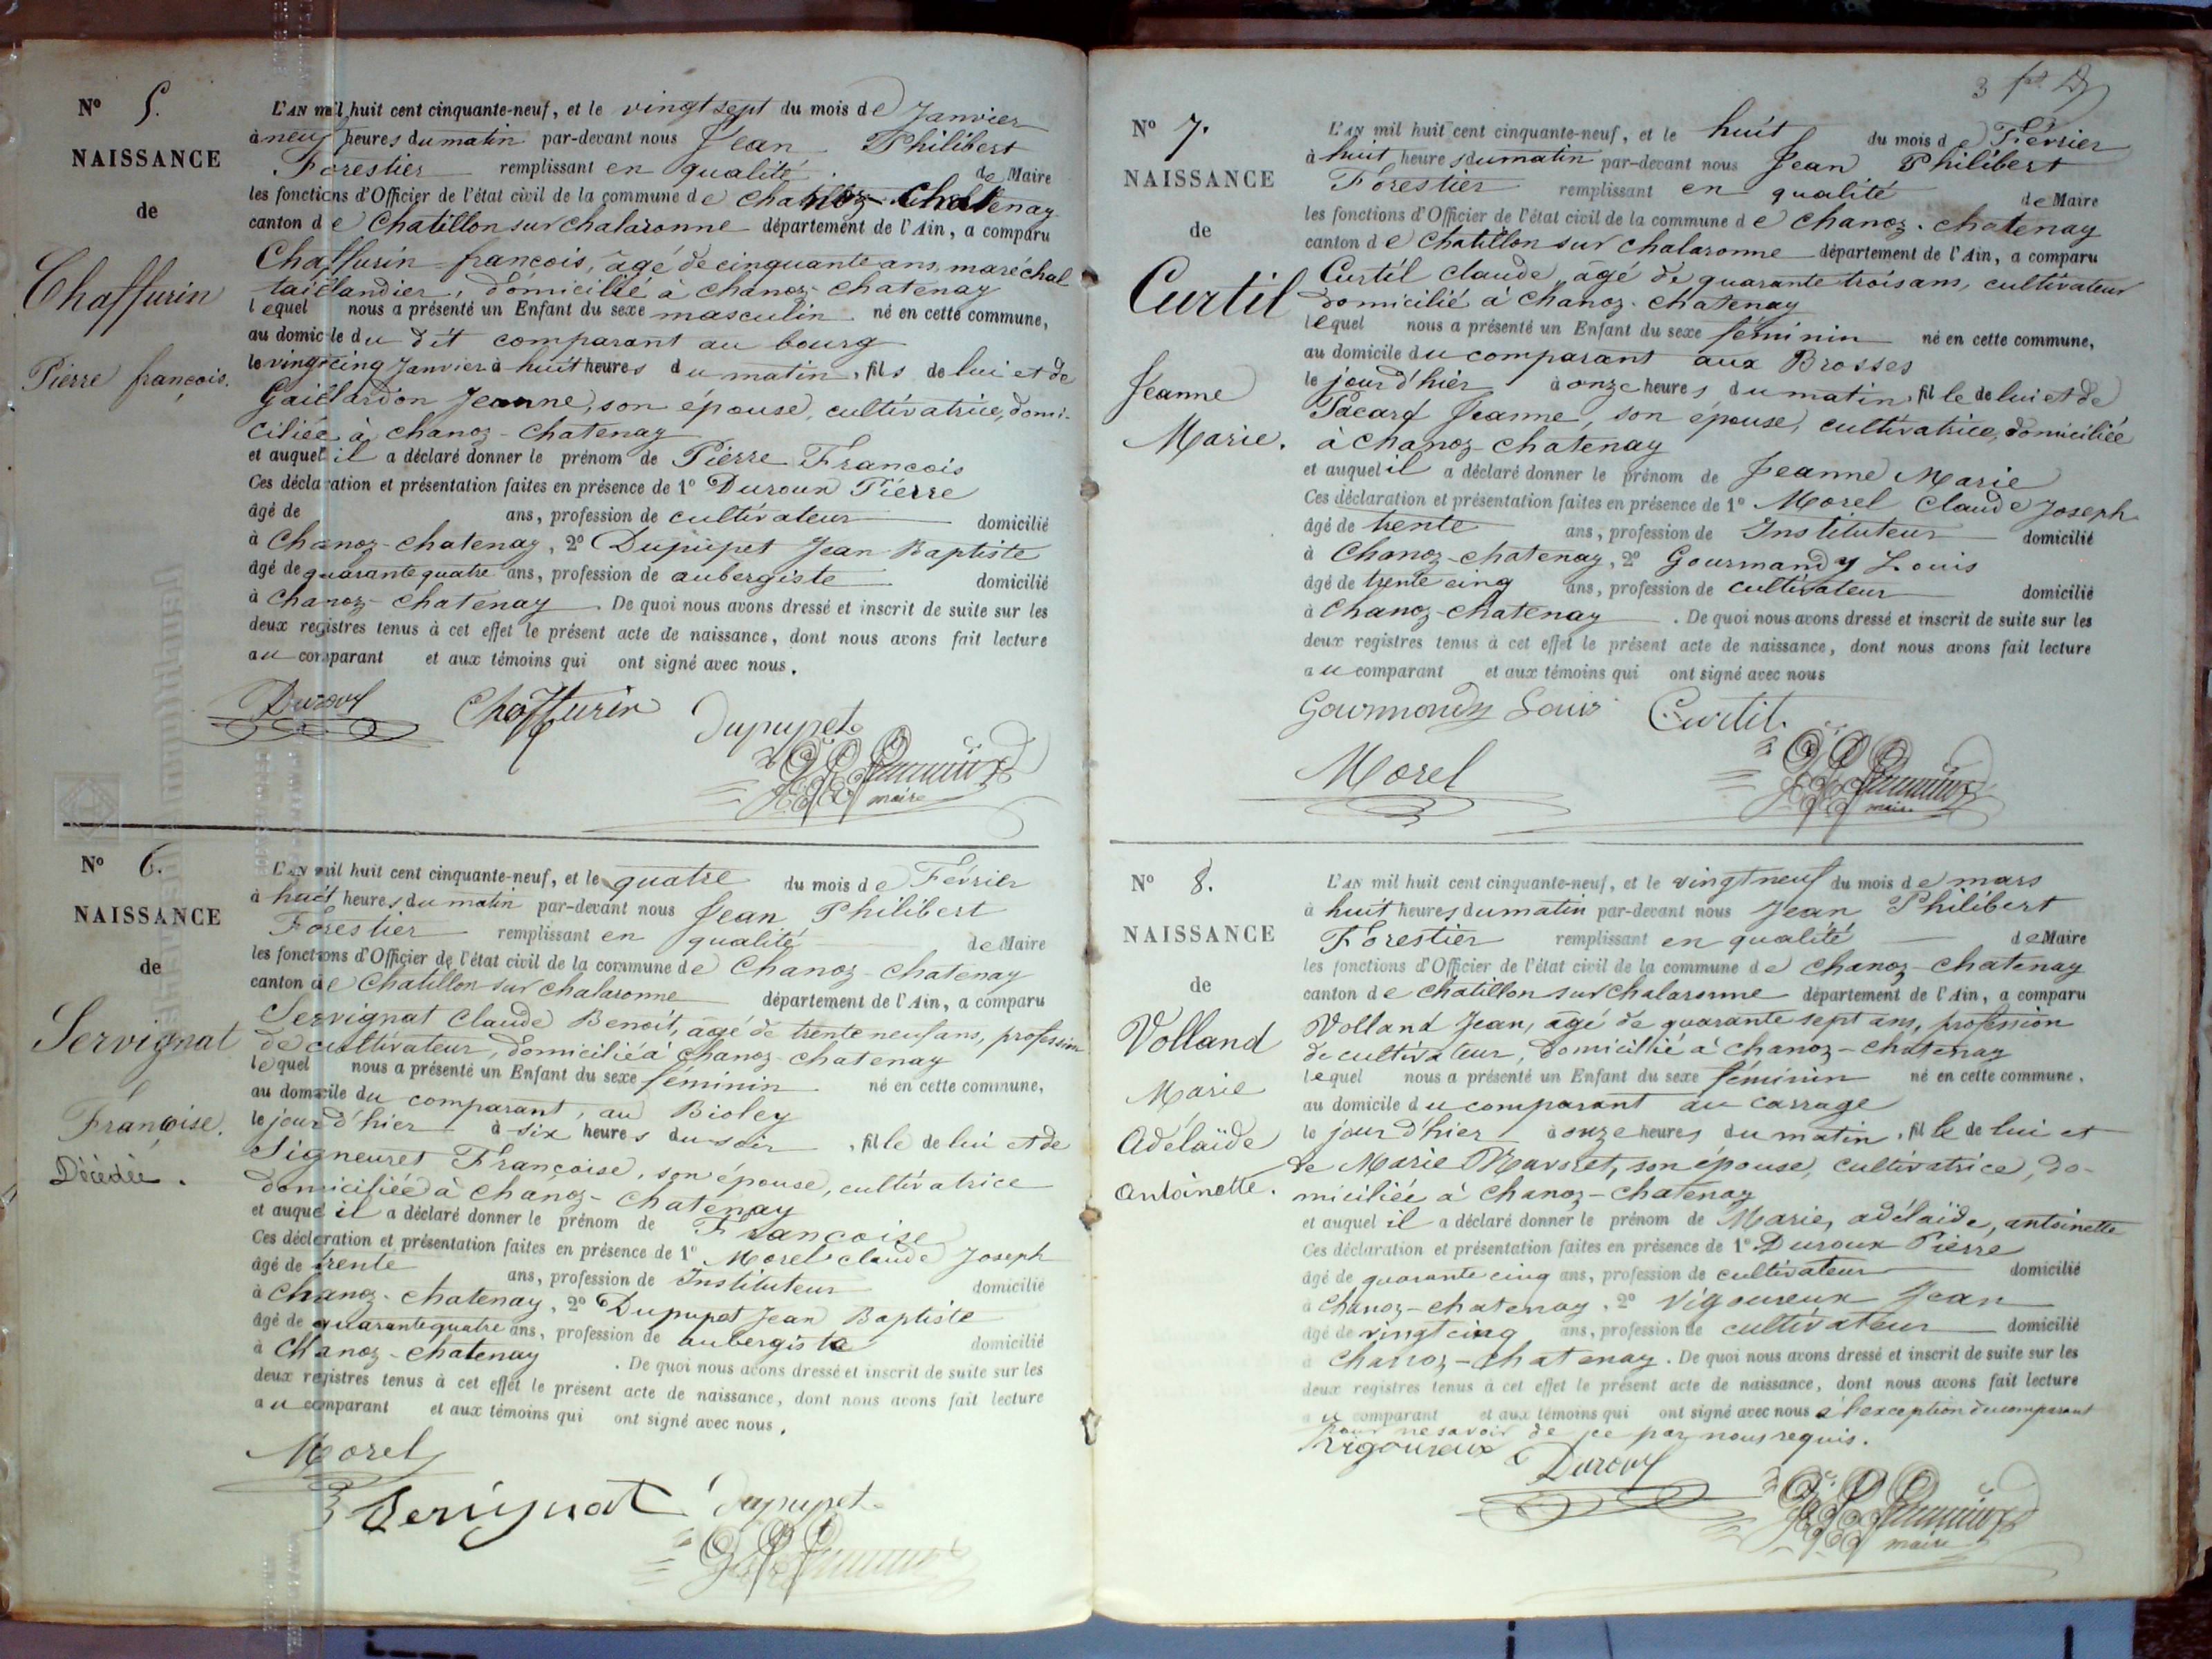 N° 5.
NAISSANCE
de
Chaffurin
Pierre françois.
L'AN mil huit cent cinquante-neuf, et le vingt sept du mois de Janvier
à neuf heures du matin par-devant nous Jean Philibert
Forestier remplissant en qualité de Maire
les fonctions d'Officier de l'état civil de la commune de Chanoz-Chatenay
canton de Chatillon sur Chalaronne département de l'Ain, a comparu
Chaffurin françois, âgé de cinquante ans, maréchal
taillandier, domicilié à Chanoz-Chatenay
lequel nous a présenté un Enfant du sexe masculin né en cette commune,
au domicile du dit comparant au bourg
le vingt cinq Janvier à huit heures du matin, fils de lui et de
Gaillardon Jeanne, son épouse, cultivatrice, domi-
ciliée à Chanoz-Chatenay
et auquel il a déclaré donner le prénom de Pierre François
Ces déclaration et présentation faites en présence de 1° Duroux Pierre
âgé de ans, profession de cultivateur domicilié
à Chanoz-Chatenay, 2° Dupupet Jean Baptiste
âgé de quarante quatre ans, profession de aubergiste domicilié
à Chanoz-Chatenay. De quoi nous avons dressé et inscrit de suite sur les
deux registres tenus à cet effet le présent acte de naissance, dont nous avons fait lecture
au comparant et aux témoins qui ont signé avec nous.
Duroux Chaffurin Dupupet
maire
N° 6.
NAISSANCE
de
Servignat
Françoise.
Décédée.
L'AN mil huit cent cinquante-neuf, et le quatre du mois de Février
à huit heures du matin par-devant nous Jean Philibert
Forestier remplissant en qualité de Maire
les fonctions d'Officier de l'état civil de la commune de Chanoz-Chatenay
canton de Chatillon sur Chalaronne département de l'Ain, a comparu
Servignat Claude Benoit, âgé de trente neuf ans, profession
de cultivateur, domicilié à Chanoz-Chatenay
lequel nous a présenté un Enfant du sexe féminin né en cette commune,
au domicile du comparant, au Bioley
le jour d'hier à six heures du soir, fille de lui et de
Signeuret Françoise, son épouse, cultivatrice
domiciliée à Chanoz-Chatenay
et auquel il a déclaré donner le prénom de Françoise
Ces déclaration et présentation faites en présence de 1° Morel Claude Joseph
âgé de trente ans, profession de Instituteur domicilié
à Chanoz-Chatenay, 2° Dupupet Jean Baptiste
âgé de quarante quatre ans, profession de aubergiste domicilié
à Chanoz-Chatenay. De quoi nous avons dressé et inscrit de suite sur les
deux registres tenus à cet effet le présent acte de naissance, dont nous avons fait lecture
au comparant et aux témoins qui ont signé avec nous.
Morel
Servignat Dupupet
3
N° 7.
NAISSANCE
de
Curtil
Jeanne
Marie.
L'AN mil huit cent cinquante-neuf, et le huit du mois de Février
à huit heures du matin par-devant nous Jean Philibert
Forestier remplissant en qualité de Maire
les fonctions d'Officier de l'état civil de la commune de Chanoz-Chatenay
canton de Chatillon sur Chalaronne département de l'Ain, a comparu
Curtil Claude, âgé de quarante trois ans, cultivateur
domicilié à Chanoz-Chatenay
lequel nous a présenté un Enfant du sexe féminin né en cette commune,
au domicile du comparant aux Brosses
le jour d'hier à onze heures du matin, fille de lui et de
Pacard Jeanne, son épouse, cultivatrice, domiciliée
à Chanoz-Chatenay
et auquel il a déclaré donner le prénom de Jeanne Marie
Ces déclaration et présentation faites en présence de 1° Morel Claude Joseph
âgé de trente ans, profession de Instituteur domicilié
à Chanoz-Chatenay, 2° Gourmandy Louis
âgé de trente cinq ans, profession de cultivateur domicilié
à Chanoz-Chatenay. De quoi nous avons dressé et inscrit de suite sur les
deux registres tenus à cet effet le présent acte de naissance, dont nous avons fait lecture
au comparant et aux témoins qui ont signé avec nous
Gourmandy Louis Curtil
Morel
maire
N° 8.
NAISSANCE
de
Volland
Marie
Adélaïde
Antoinette.
L'AN mil huit cent cinquante-neuf, et le vingt neuf du mois de mars
à huit heures du matin par-devant nous Jean Philibert
Forestier remplissant en qualité de Maire
les fonctions d'Officier de l'état civil de la commune de Chanoz-Chatenay
canton de Chatillon sur Chalaronne département de l'Ain, a comparu
Volland Jean, âgé de quarante sept ans, profession
de cultivateur, domicilié à Chanoz-Chatenay
lequel nous a présenté un Enfant du sexe féminin né en cette commune,
au domicile du comparant au Carrage
le jour d'hier à onze heures du matin, fille de lui et
de Marie son épouse, cultivatrice, do-
miciliée à Chanoz-Chatenay
et auquel il a déclaré donner le prénom de Marie, adélaïde, antoinette
Ces déclaration et présentation faites en présence de 1° Duroux Pierre
âgé de quarante cinq ans, profession de cultivateur domicilié
à Chanoz-Chatenay, 2° Vigoureux Jean
âgé de vingt cinq ans, profession de cultivateur domicilié
à Chanoz-Chatenay. De quoi nous avons dressé et inscrit de suite sur les
deux registres tenus à cet effet le présent acte de naissance, dont nous avons fait lecture
au comparant et aux témoins qui ont signé avec nous à l'exception du comparant
pour ne savoir de ce par nous requis.
Vigoureux Duroux
maire